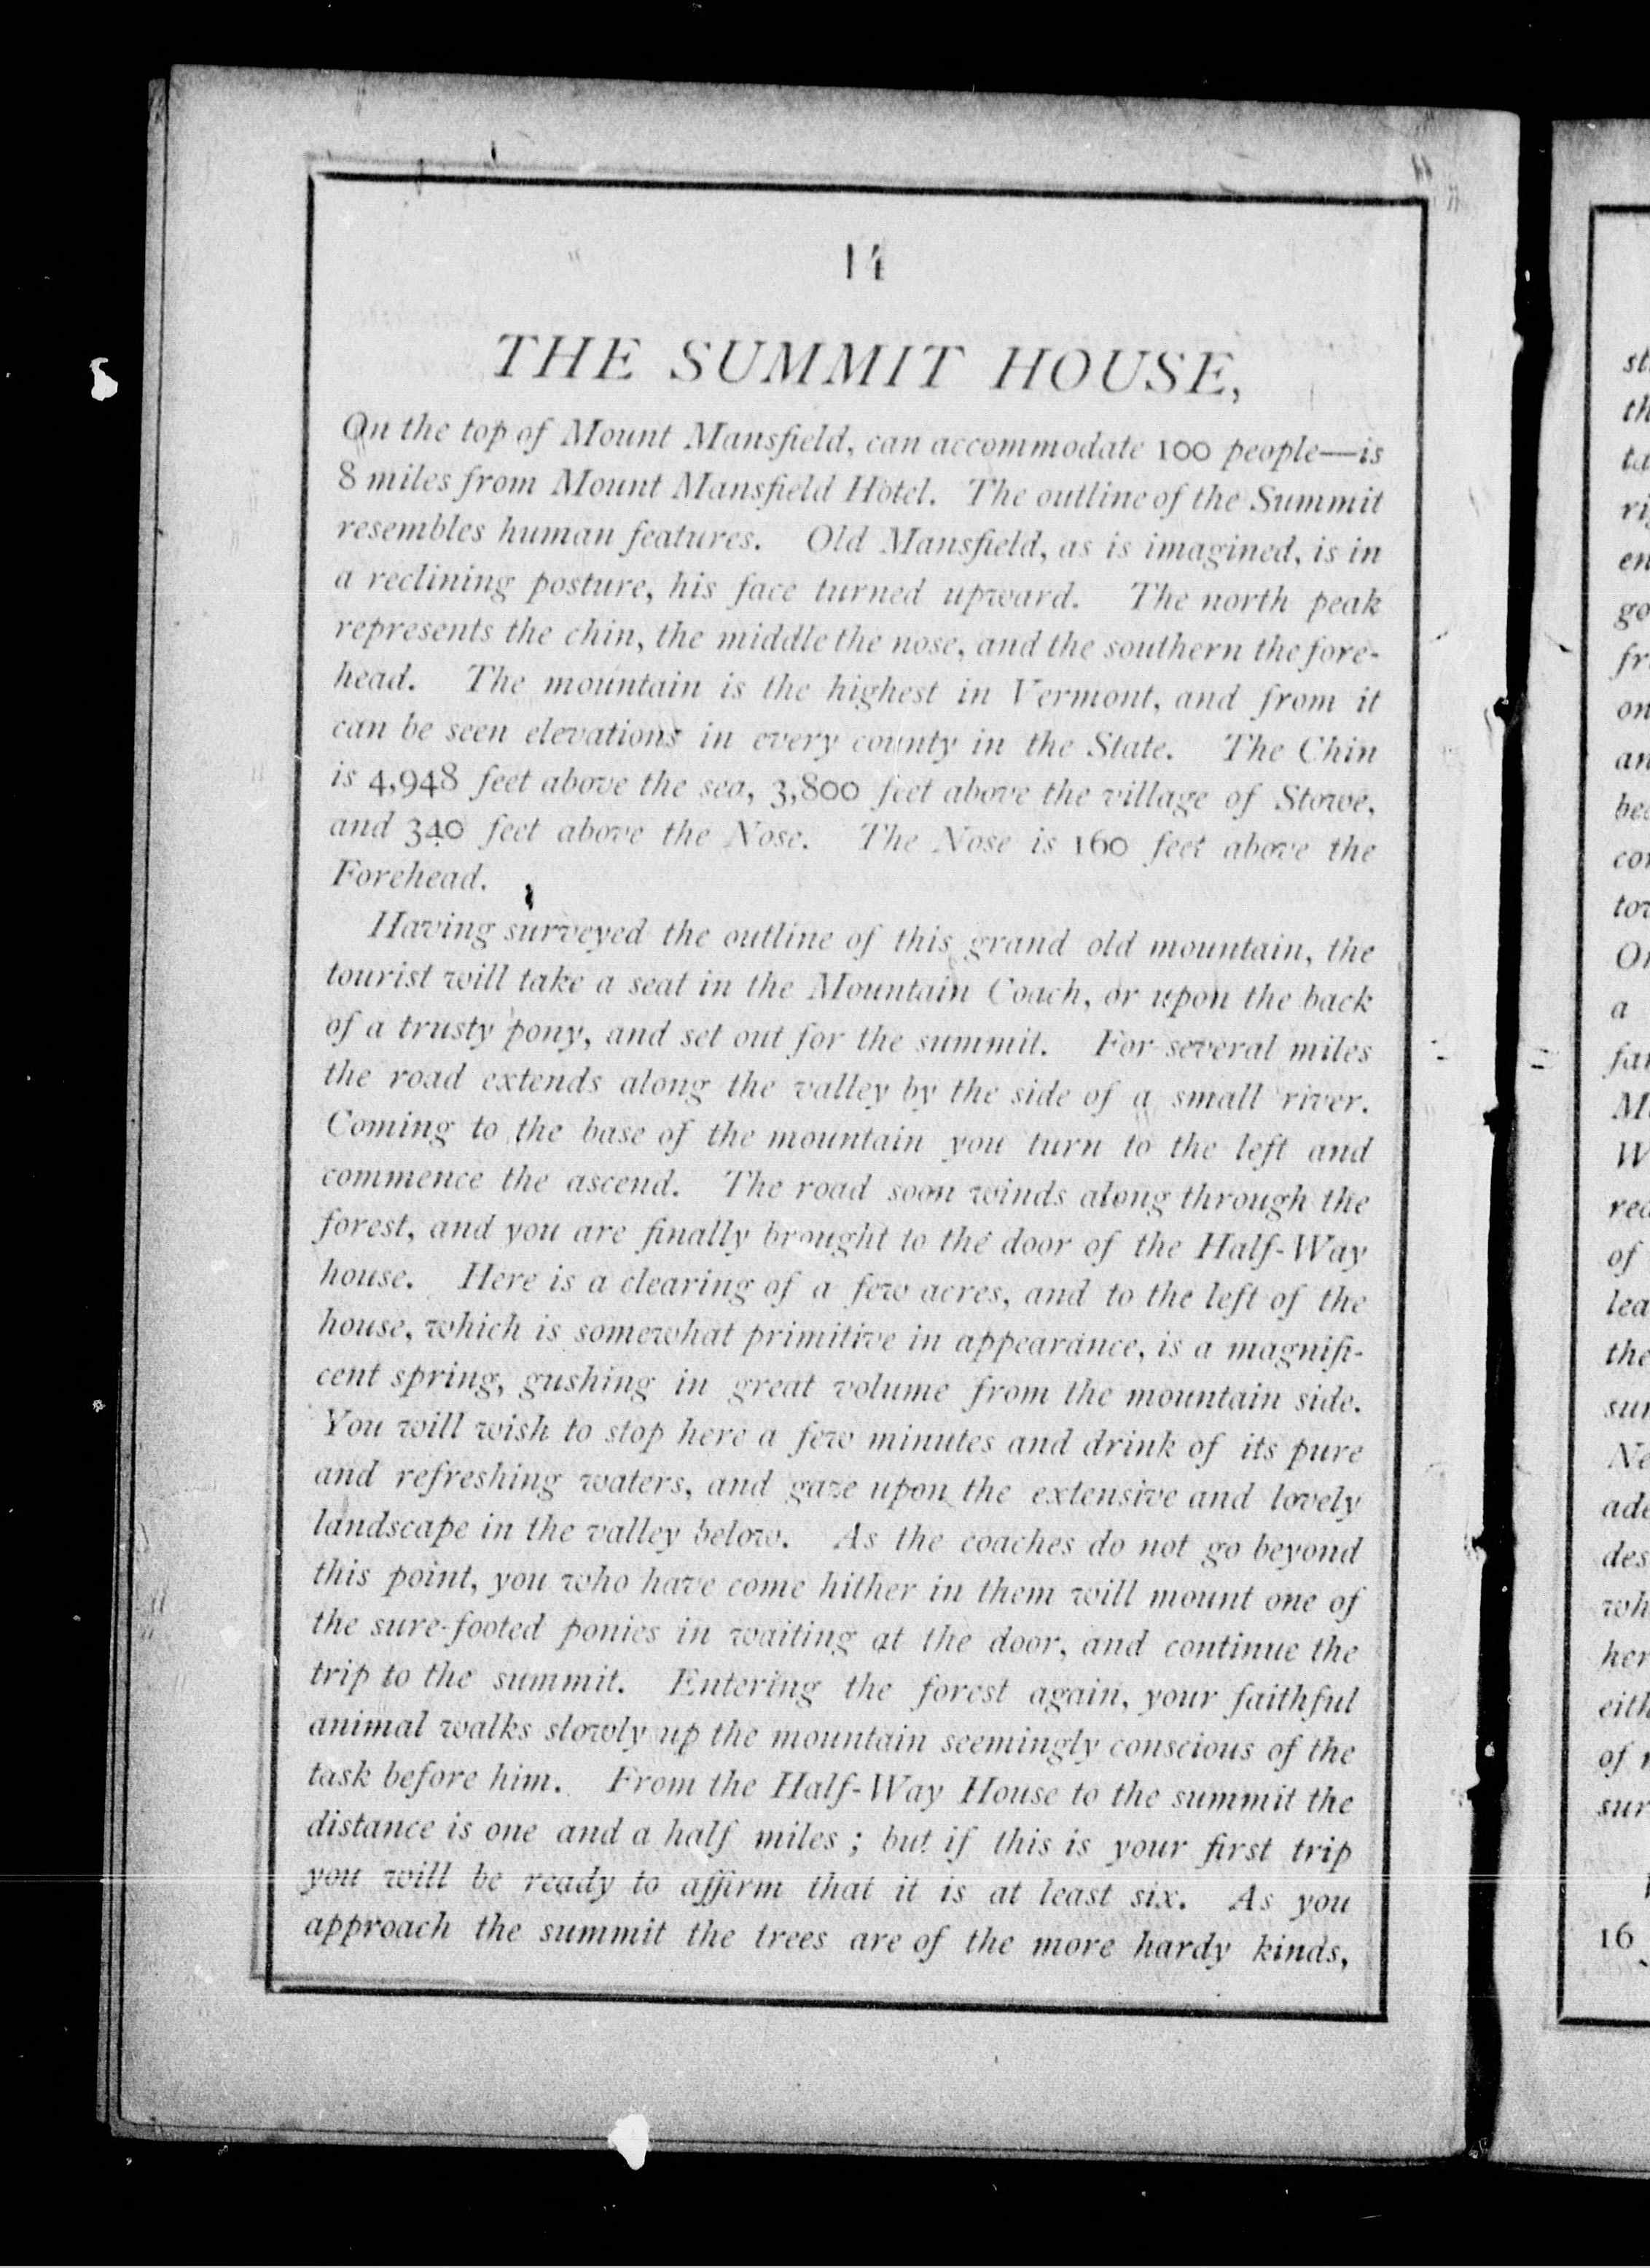 14
THE SUMMIT HOUSE,
On the top of Mount Mansfield, can accommodate 100 people—is
8 miles from Mount Mansfield Hotel. The outline of the Summit
resembles human features. Old Mansfield, as is imagined, is in
a reclining posture, his face turned upward. The north peak
represents the chin, the middle the nose, and the southern the fore-
head. The mountain is the highest in Vermont, and from it
can be seen elevations in every county in the State. The Chin
is 4,948 feet above the sea, 3,800 feet above the village of Stowe,
and 340 feet above the Nose. The Nose is 160 feet above the
Forehead.
Having surveyed the outline of this grand old mountain, the
tourist will take a seat in the Mountain Coach, or upon the back
of a trusty pony, and set out for the summit. For several miles
the road extends along the valley by the side of a small river.
Coming to the base of the mountain you turn to the left and
commence the ascend. The road soon winds along through the
forest, and you are finally brought to the door of the Half-Way
house. Here is a clearing of a few acres, and to the left of the
house, which is somewhat primitive in appearance, is a magnifi-
cent spring, gushing in great volume from the mountain side.
You will wish to stop here a few minutes and drink of its pure
and refreshing waters, and gaze upon the extensive and lovely
landscape in the valley below. As the coaches do not go beyond
this point, you who have come hither in them will mount one of
the sure-footed ponies in waiting at the door, and continue the
trip to the summit. Entering the forest again, your faithful
animal walks slowly up the mountain seemingly conscious of the
task before him. From the Half-Way House to the summit the
distance is one and a half miles; but if this is your first trip
you will be ready to affirm that it is at least six. As you
approach the summit the trees are of the more hardy kinds,
16